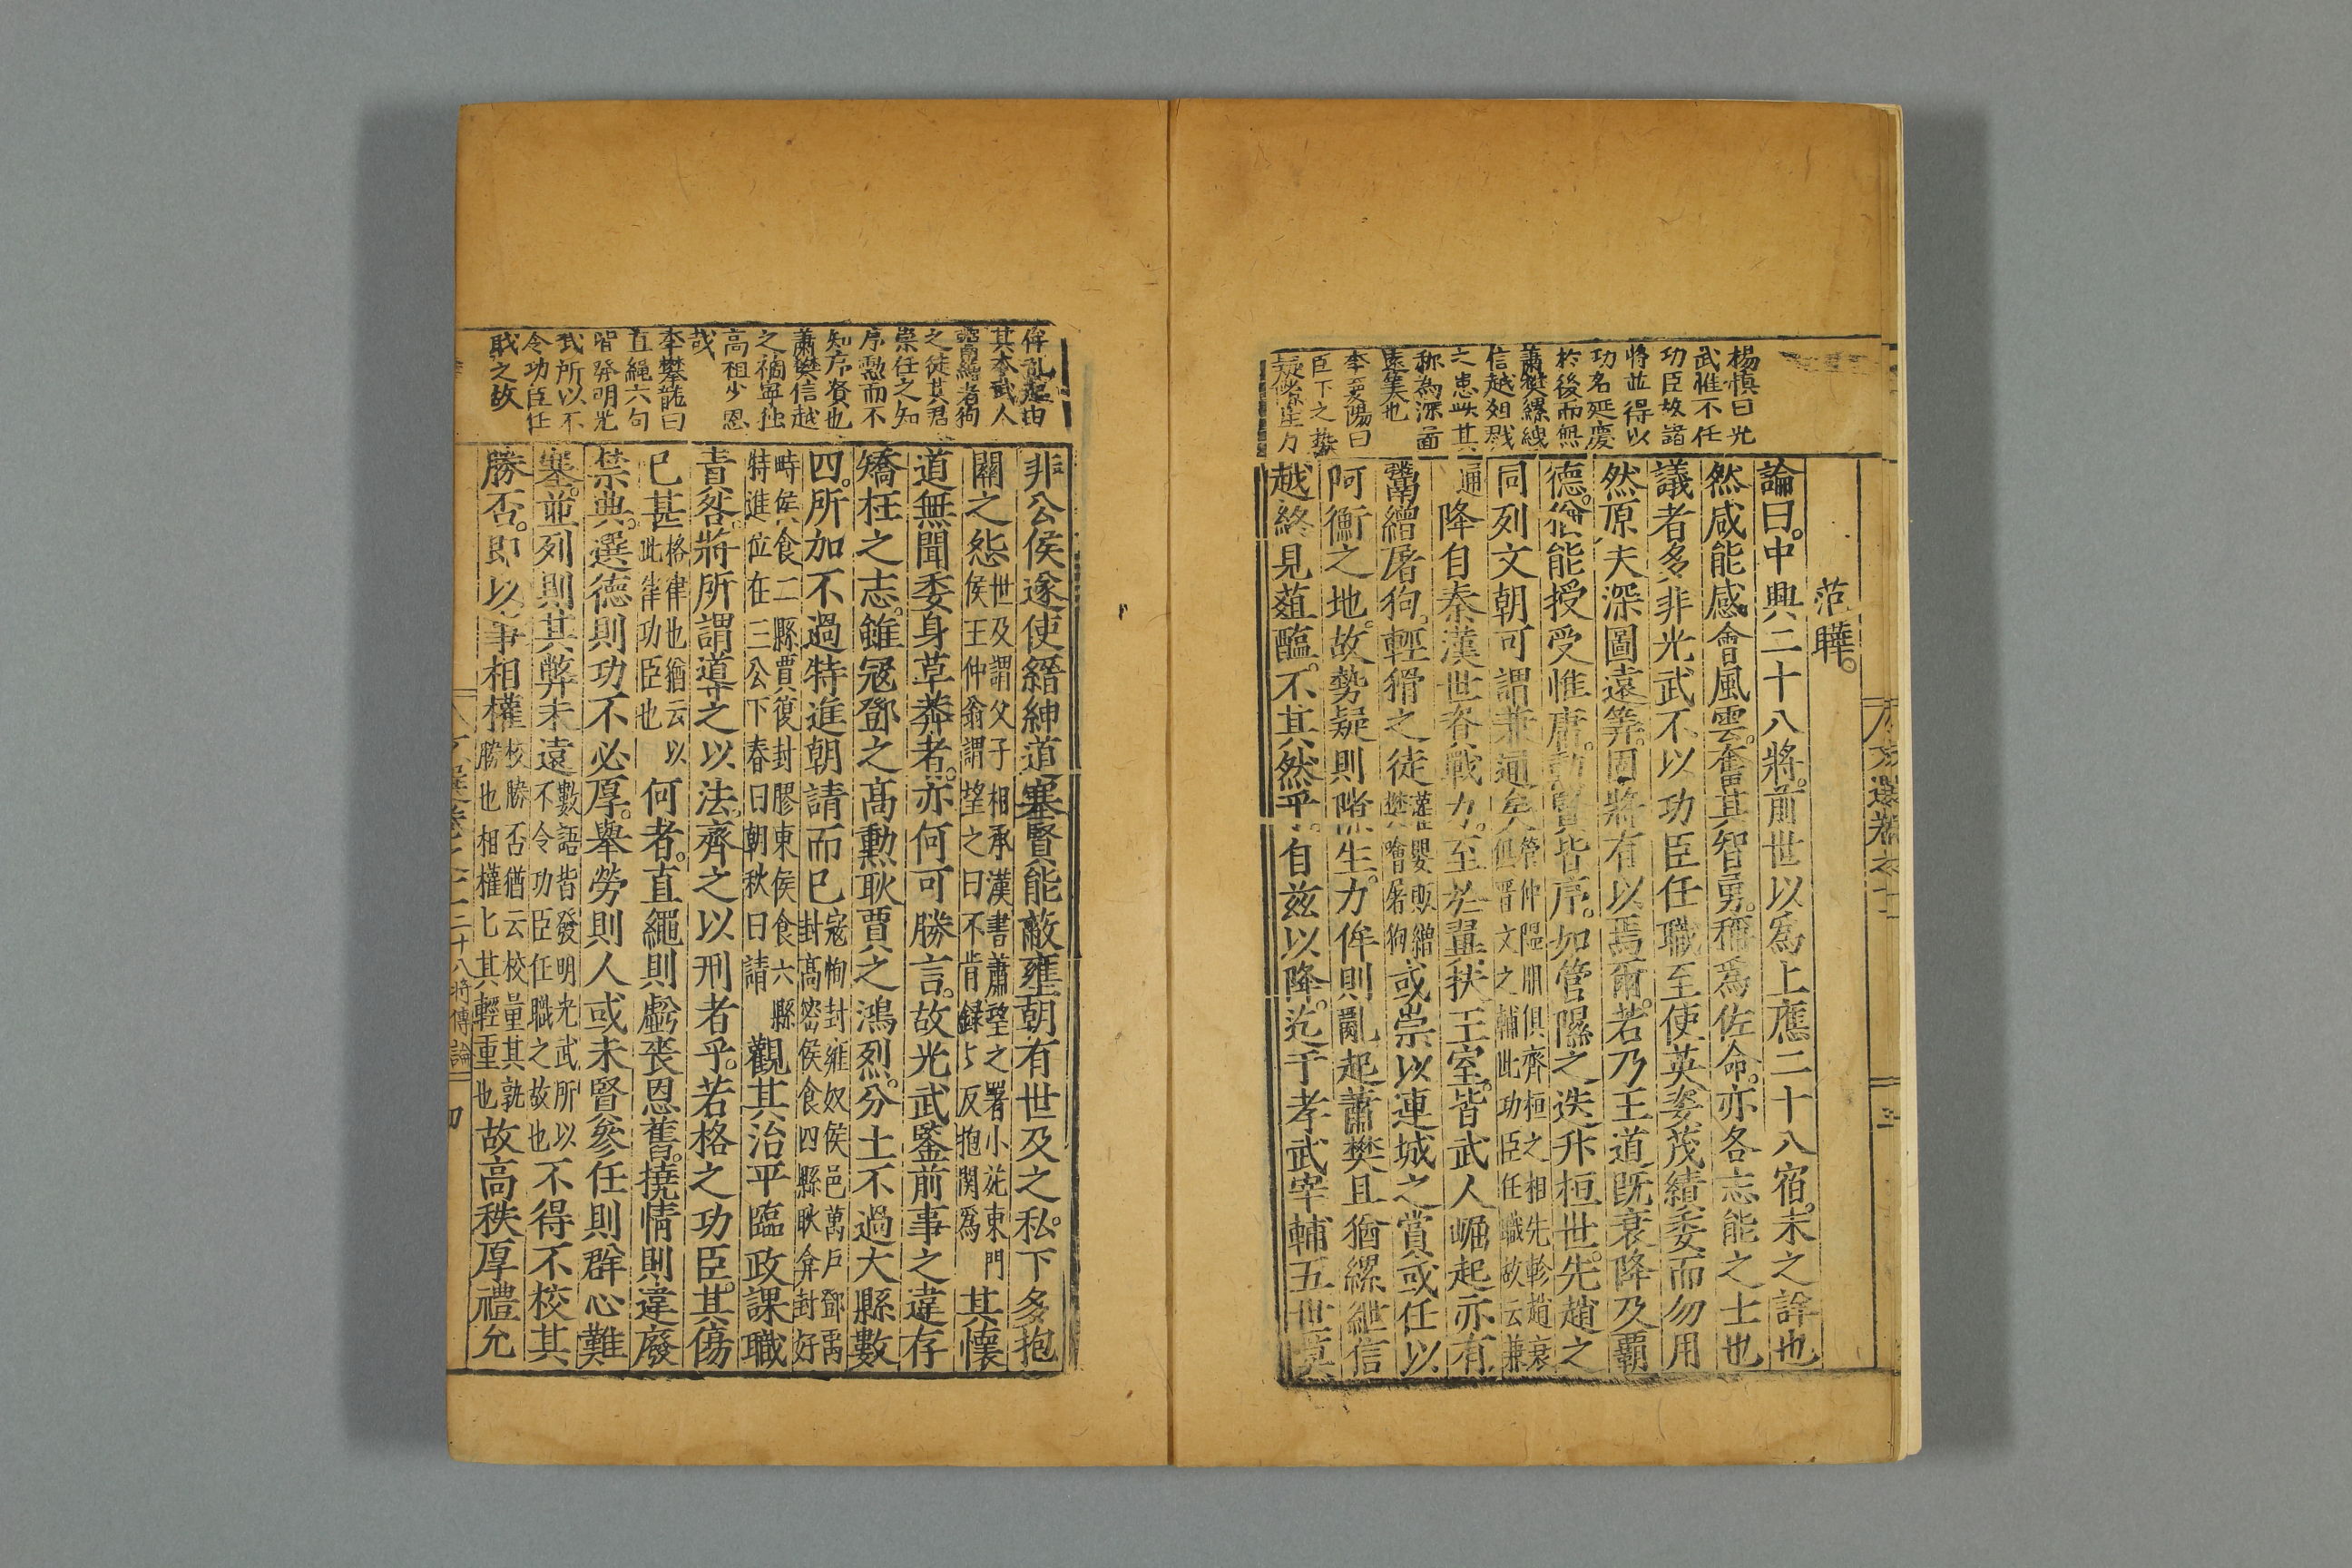 楊慎曰光
武惟不任
功臣故諸
將並得以
功名延慶
於後而無
蕭樊縲紲
信越菹戮
之患此其
称為深圖
遠筭也
李夔陽曰
臣下之勢
疑傺生力
范曄。
論曰。中興二十八將。前世以爲上應二十八宿。未之詳也
然咸能感會風雲。奮其智勇。稱爲佐命。亦各志能之士也
議者多非光武不以功臣任職至使英姿茂績委而勿用
然原夫深圖遠筭。固將有以焉爾。若乃王道既衰降及霸
德。猶能授受惟庸。勳賢皆序。如管隰之迭升桓世。先趙之
同列文朝可謂兼通矣管仲隰朋俱齊桓之相先軫趙衰俱晋文之輔此功臣任職故云兼
通降自秦漢世資戰力。至於翼扶王室。皆武人崛起亦有
鬻繒屠狗。輕猾之徒灌嬰販繒樊噲屠狗或崇以連城之賞或任以
阿衡之地。故勢疑則隙生。力侔則亂起蕭樊且猶縲紲信
越終見菹醢。不其然乎。自兹以降。迄于孝武宰輔五世莫
文選卷之十二
三
侔乱起由
其本武人
崇任之知
序勲而不
知序賢也
蕭樊信越
之禍寧独
高祖少恩
哉
李攀龍曰
直縄六句
皆發明光
武所以不
令功臣任
职之故
非公侯遂使縉紳道塞賢能蔽壅朝有世及之私。下多抱
關之怨世及謂父子相承漢書蕭望之署小苑東門侯王仲翁謂望之曰不肯録〻反抱関爲其懷
道無聞委身草莽者。亦何可勝言。故光武鑒前事之違存
矯枉之志。雖寇鄧之高勳耿賈之鴻烈。分土不過大縣數
四。所加不過特進朝請而已寇恂封雍奴侯邑萬戶鄧禹封高密侯食四縣耿弇封好
畤侯食二縣賈復封膠東侯食六縣特進位在三公下春曰朝秋曰請觀其治平臨政課職
責咎。將所謂導之以法。齊之以刑者乎。若格之功臣。其傷
已甚格律也猶云以此律功臣也何者。直繩則虧喪恩舊。撓情則違廢
禁典。選德則功不必厚。舉勞則人或未賢參任則群心難
塞。並列則其弊未遠數語皆發明光武所以不令功臣任職之故也不得不校其
勝否。即以事相權校勝否猶云校量其孰勝也相權比其輕重也故高秩厚禮允
二十八將傳論
四